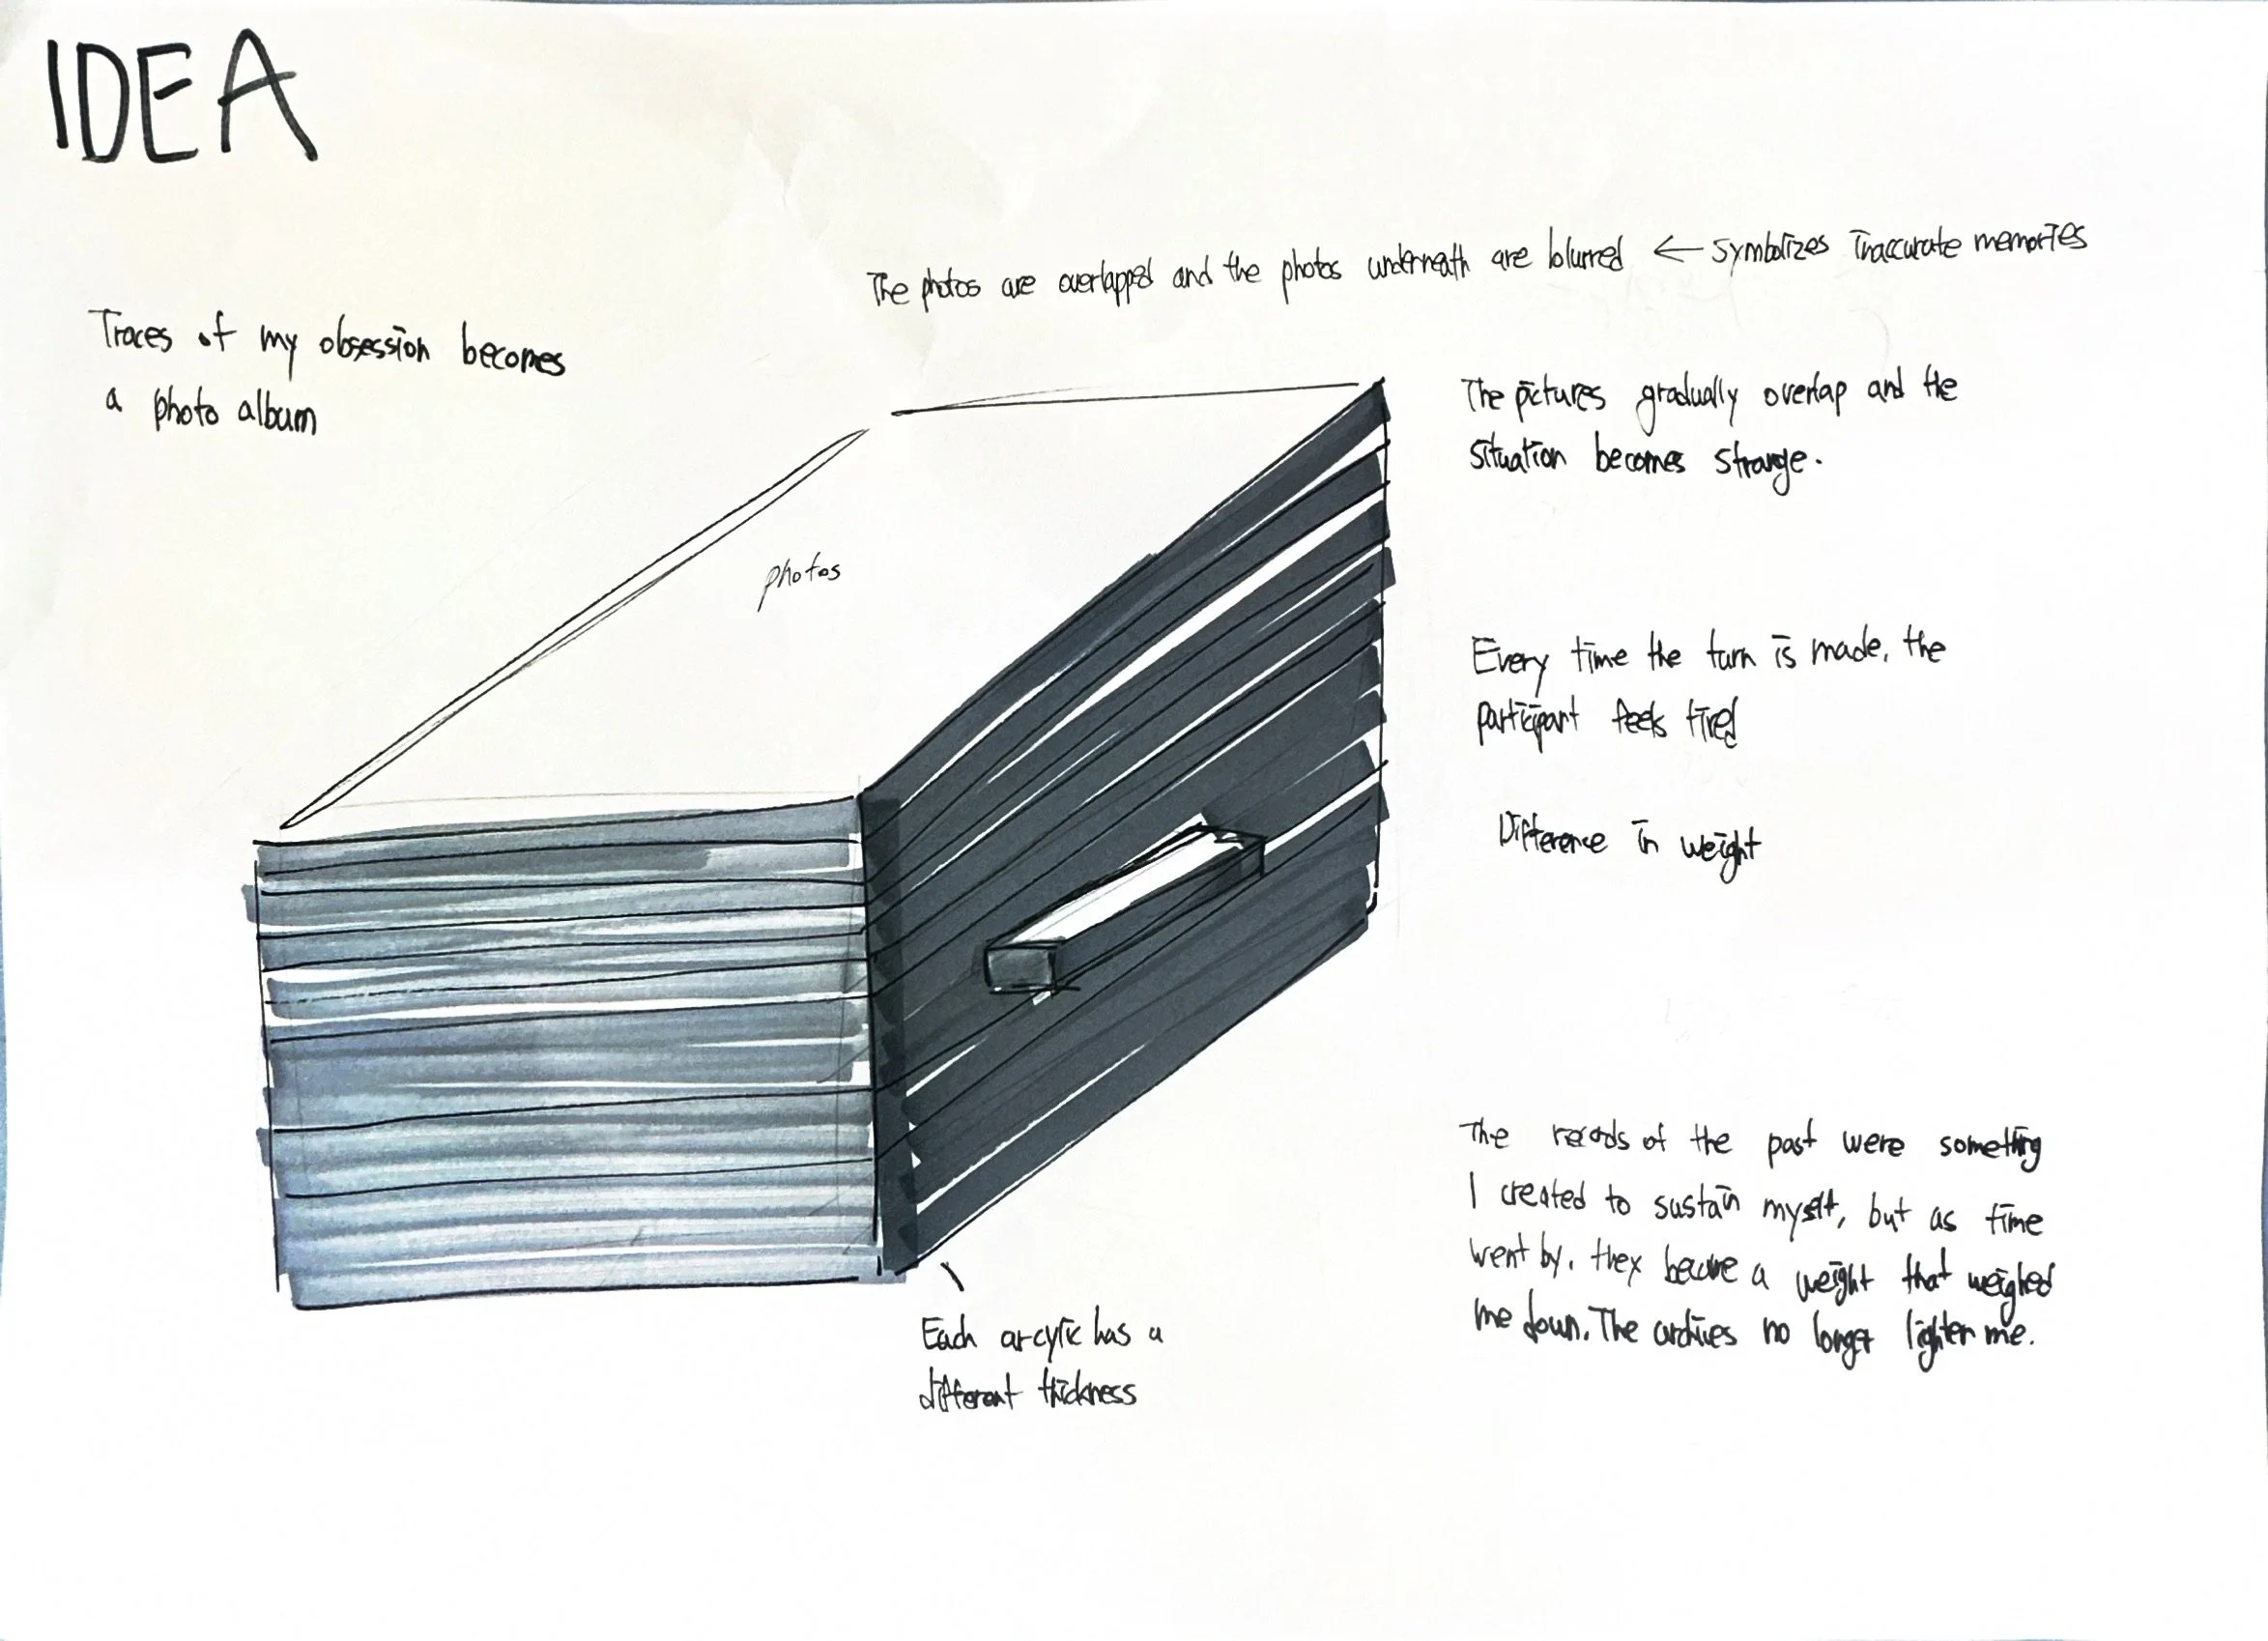 IDEA
The photos are overlapped and the photos underneath are blurred ← symbolizes inaccurate memories
Traces of my obsession becomes
a photo album
The pictures gradually overlap and the
situation becomes strange.
photos
Every time the turn is made, the
participant feels tired
Difference in weight
The records of the past were something
I created to sustain myself, but as time
went by, they became a weight that weighed
me down. The archives no longer lighten me.
Each arcylic has a
different thickness